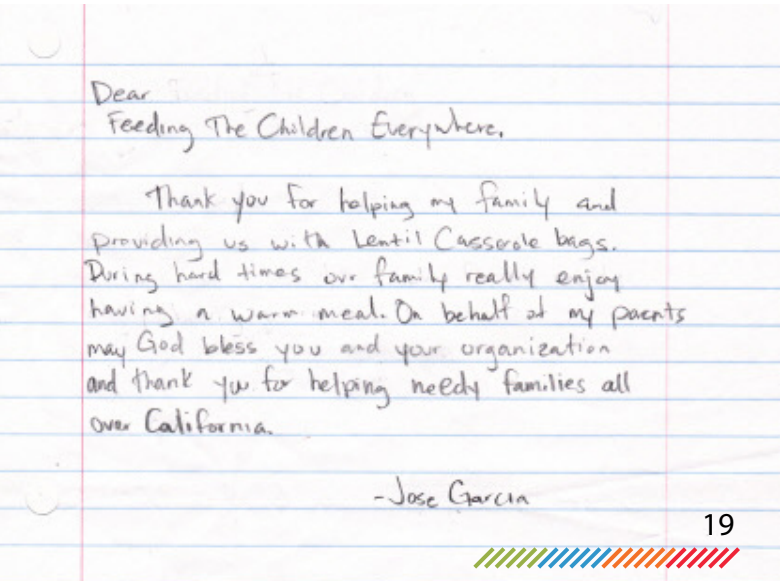 Dear
Feeding The Children Everywhere.
Thank you for helping my family and
providing us with Lentil Casserole bags.
During hard times our family really enjoy
having a warm meal. On behalf of my parents
may God bless you and your organization
and thank you for helping needy families all
over California.
-Jose Garcia
19